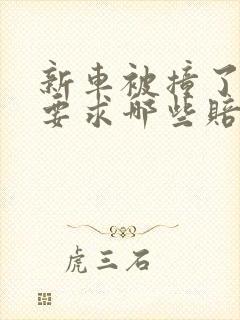 新車被撞了
要求哪些賠
虎三石